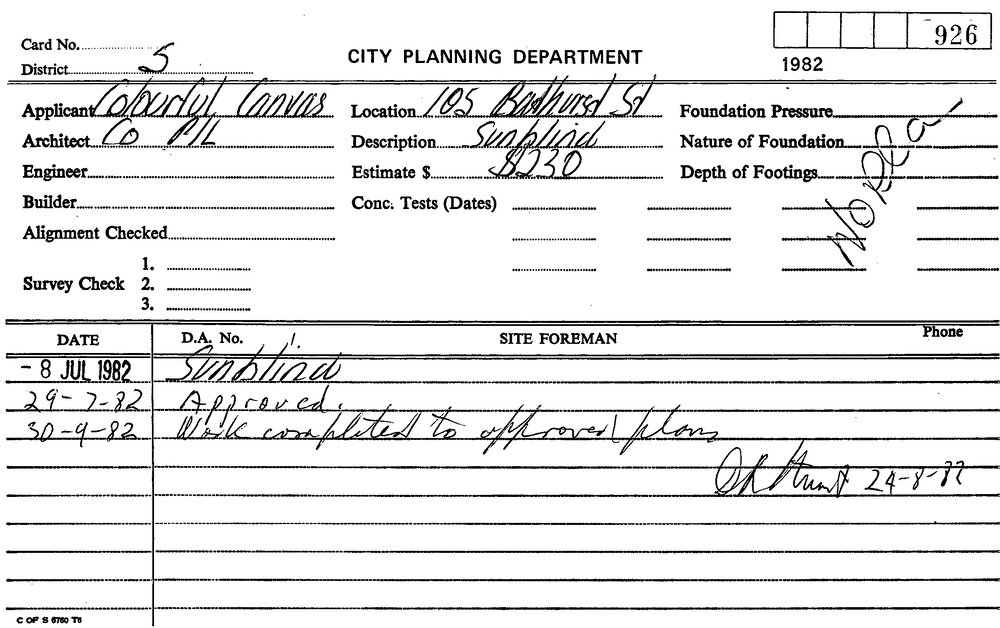 926
Card No.
1982
District 5
CITY PLANNING DEPARTMENT
Applicant Colourful Canvas
Location 105 Bathurst St
Foundation Pressure
Architect Co P/L
Description Sunblind
Nature of Foundation
Engineer
Estimate $ $230
Depth of Footings
Builder
Conc. Tests (Dates)
Alignment Checked
1.
Survey Check 2.
3.
DATE D.A. No. SITE FOREMAN Phone
- 8 JUL 1982 Sunblind
29-7-82 Approved.
30-9-82 Work completed to approved plans
24-8-82
C OF S 6760 T6